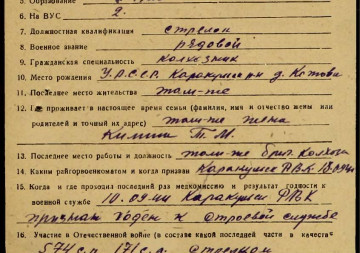 5. Образование
6. На ВУС 2.
7. Должностная квалификация стрелок
8. Военное звание рядовой
9. Гражданская специальность колхозник
10. Место рождения У.А.С.С.Р. Каракулин рн д.
11. Последнее место жительства там-же
12. Где проживает в настоящее время семья (фамилия, имя и отчество жены или
родителей и точный их адрес) там-же жена
Т. М.
13. Последнее место работы и должность там-же бриг. колхоза
14. Каким райгорвоенкоматом и когда призван
15. Когда и где проходил последний раз медкомиссию и результат годности к
военной службе 10.0944 Каракулин РВК
признан годен к строевой службе
16. Участие в Отечественной войне (в составе какой последней части и качества
574 с.п. 171 с.д. Стрелком